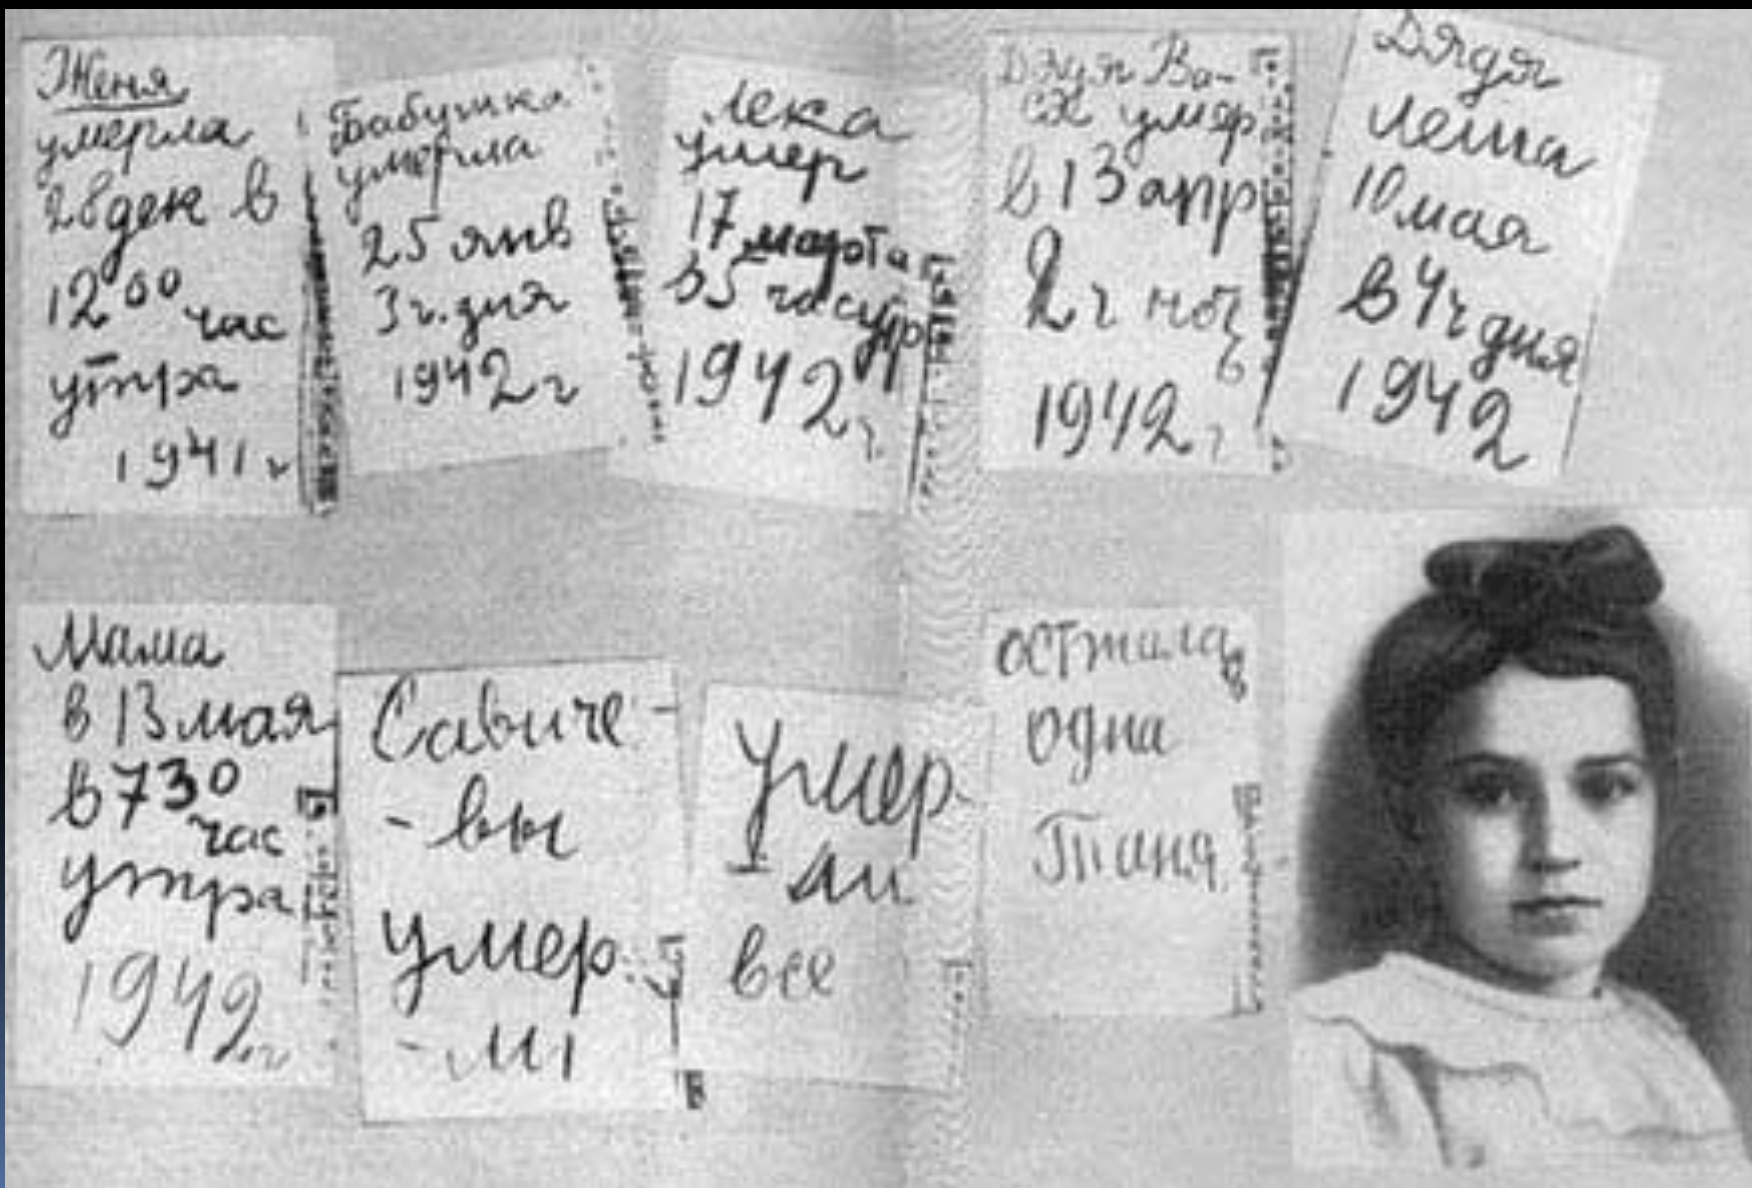 Женя
умерла
28 дек в
12 00 час
утра
1941 г
Бабушка
умерла
25 янв
3 ч. дня
1942 г
Лека
умер
17 марта
в 5 час утр
1942 г
Дядя Ва-
ся умер
в 13 апр
2 ч ночь
1942 г
Дядя
Леша
10 мая
в 4 ч дня
1942
Мама
в 13 мая
в 7 30
час
утра
1942 г
Савиче-
-вы
умер
-ли
Умер
-ли
все
Осталась
одна
Таня